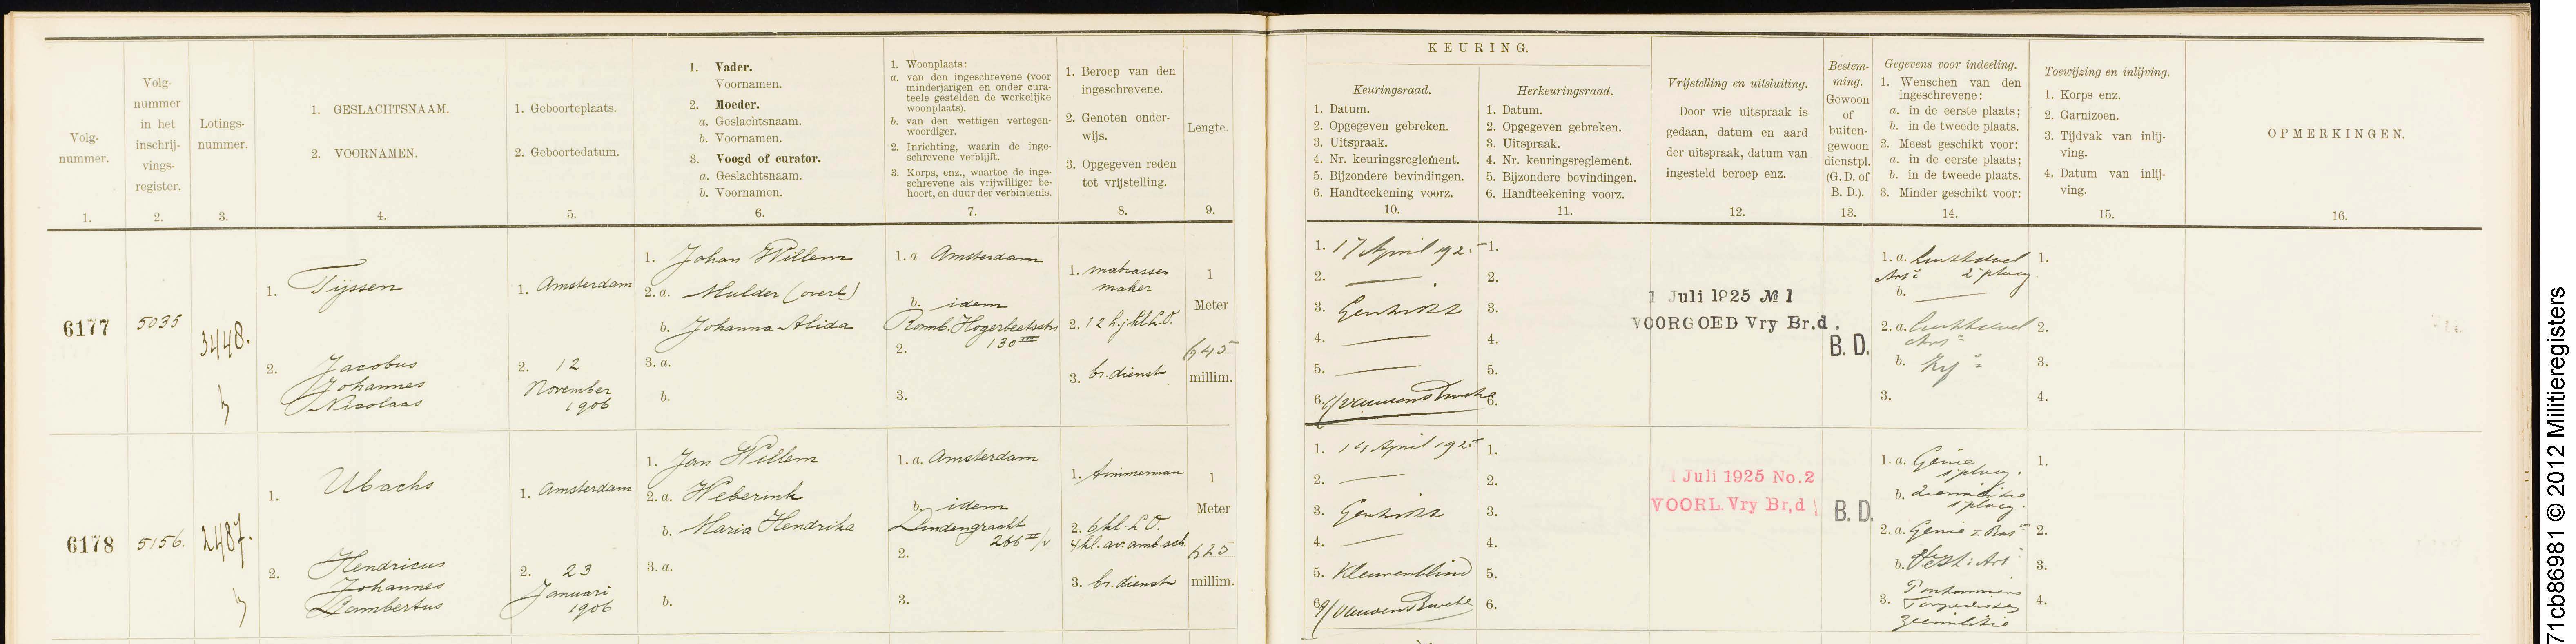 Volg-
nummer.
1.
Volg-
nummer
in het
inschrij-
vings-
register.
2.
Lotings-
nummer.
3.
1. GESLACHTSNAAM.
2. VOORNAMEN.
4.
1. Geboorteplaats.
2. Geboortedatum.
5.
1. Vader.
Voornamen.
2. Moeder.
a. Geslachtsnaam.
b. Voornamen.
3. Voogd of curator.
a. Geslachtsnaam.
b. Voornamen.
6.
1. Woonplaats:
a. van den ingeschrevene (voor
minderjarigen en onder cura-
teele gestelden de werkelijke
woonplaats).
b. van den wettigen vertegen-
woordiger.
2. Inrichting, waarin de inge-
schrevene verblijft.
3. Korps, enz., waartoe de inge-
schrevene als vrijwilliger be-
hoort, en duur der verbintenis.
7.
1. Beroep van den
ingeschrevene.
2. Genoten onder-
wijs.
3. Opgegeven reden
tot vrijstelling.
8.
Lengte.
9.
KEURING.
Keuringsraad.
1. Datum.
2. Opgegeven gebreken.
3. Uitspraak.
4. Nr. keuringsreglement.
5. Bijzondere bevindingen.
6. Handteekening voorz.
10.
Herkeuringsraad.
1. Datum.
2. Opgegeven gebreken.
3. Uitspraak.
4. Nr. keuringsreglement.
5. Bijzondere bevindingen.
6. Handteekening voorz.
11.
Vrijstelling en uitsluiting.
Door wie uitspraak is
gedaan, datum en aard
der uitspraak, datum van
ingesteld beroep enz.
12.
Bestem-
ming.
Gewoon
of
buiten-
gewoon
dienstpl.
(G. D. of
B. D.).
13.
Gegevens voor indeeling.
1. Wenschen van den
ingeschrevene:
a. in de eerste plaats;
b. in de tweede plaats.
2. Meest geschikt voor:
a. in de eerste plaats;
b. in de tweede plaats.
3. Minder geschikt voor:
14.
Toewijzing en inlijving.
1. Korps enz.
2. Garnizoen.
3. Tijdvak van inlij-
ving.
4. Datum van inlij-
ving.
15.
OPMERKINGEN.
16.
6177
5035
3448.
1. Tijssen
2. Jacobus
Johannes
Nicolaas
1. Amsterdam
2. 12
November
1906
1. Johan Willem
2. a. Mulder (overl)
b. Johanna Alida
3. a.
b.
1. a Amsterdam
b. idem
Romb. Hogerbeetsstr
130 III
2.
3.
1. matrassen
maker
2. 12 h.j. kl. L.O.
3. br. dienst
1
Meter
645
millim.
1. 17 April 1925
2. —
3. Geschikt
4. —
5. —
6.
1.
2.
3.
4.
5.
6.
1 Juli 1925 № 1
VOORGOED Vry Br.d.
B. D.
1. a. Luchtdoel
Art. 2e ploeg
b. —
2. a. Luchtdoel
Art.
b.
3.
1.
2.
3.
4.
6178
5156.
2487.
1. Ubachs
2. Hendricus
Johannes
Lambertus
1. Amsterdam
2. 23
Januari
1906
1. Jan Willem
2. a. Weberink
b. Maria Hendrika
3. a.
b.
1. a. Amsterdam
b. idem
Lindengracht
266 II/v
2.
3.
1. timmerman
2. 6 kl. L.O.
4 kl. av. amb. sch.
3. br. dienst
1
Meter
625
millim.
1. 14 April 1925
2. —
3. Geschikt
4. —
5. Kleurenblind
6.
1.
2.
3.
4.
5.
6.
1 Juli 1925 No. 2
VOORL. Vry Br,d
B. D.
1. a. Genie
1e ploeg.
b. Zeemilitie
1e ploeg.
2. a. Genie
b. Vest. Art.
3. Pontonniers
Torpedisten
Zeemilitie
1.
2.
3.
4.
71cb86981 © 2012 Militieregisters